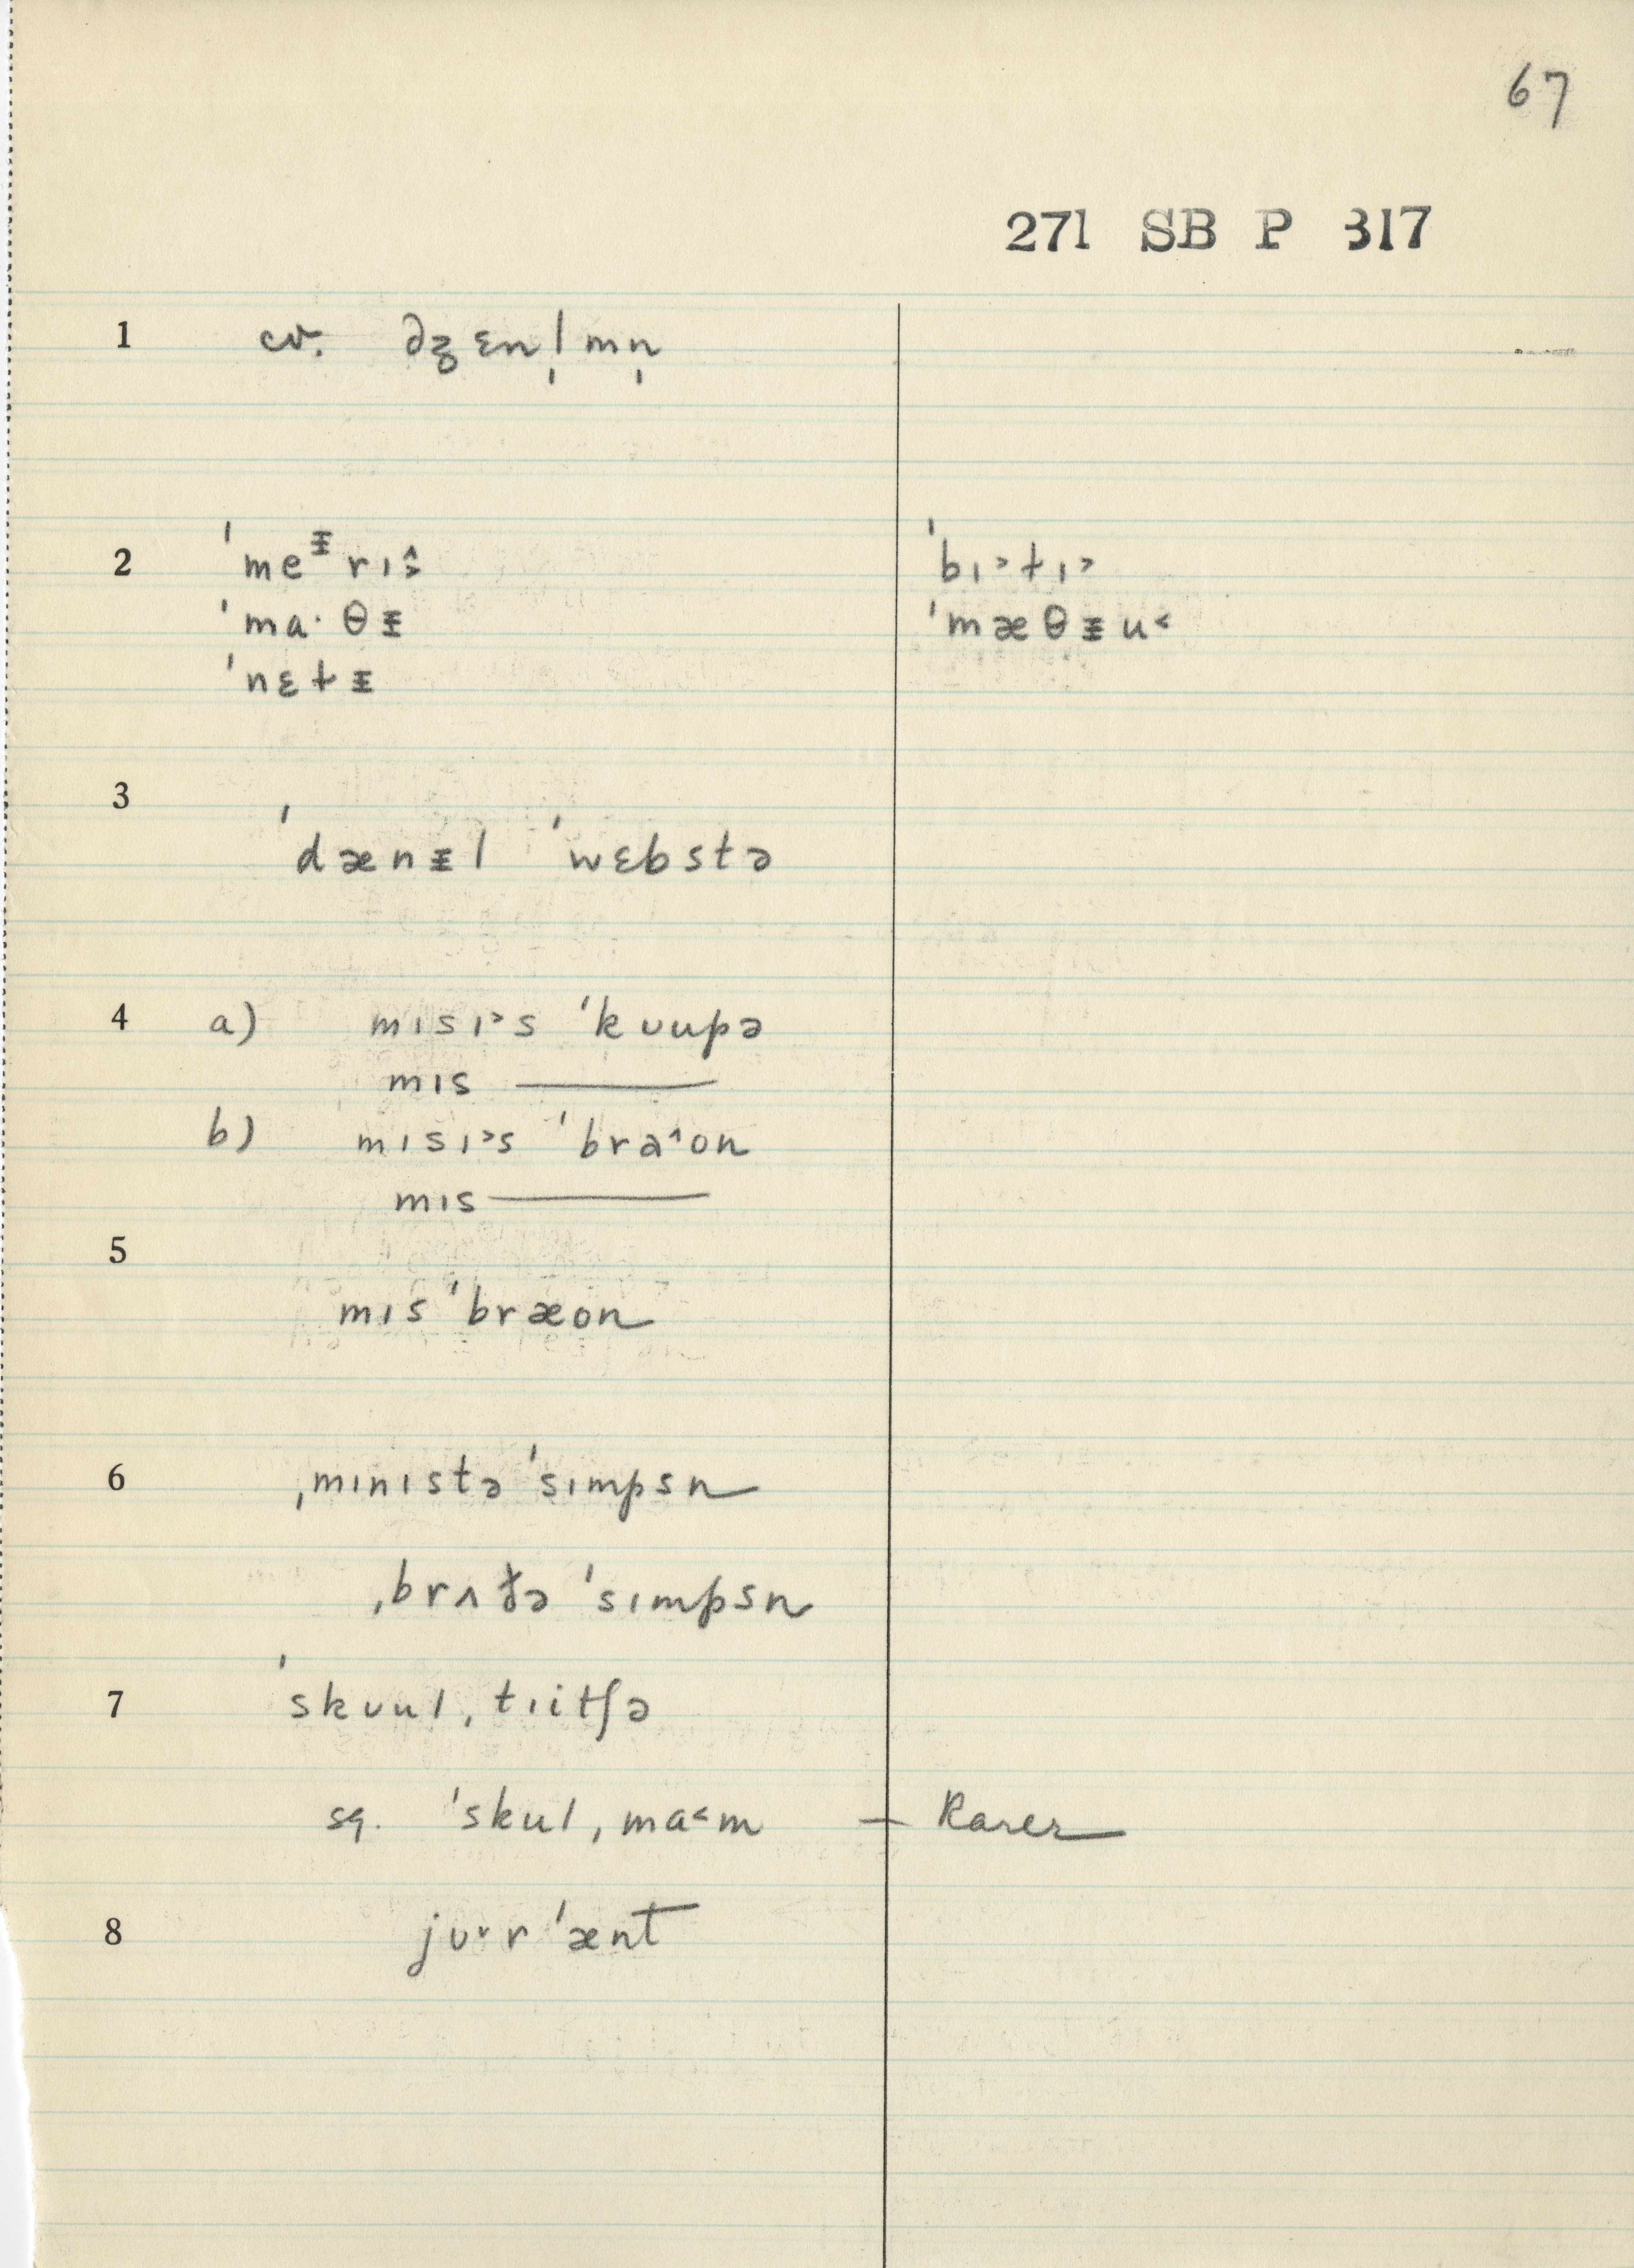 67
271 SB P 317
1 cv. dʒɛnl̩mn̩
2 ˈmeᵻrɪ ˈbɪ˃tɪ˃
ˈma·θᵻ ˈmæθᵻu˂
ˈnɛtᵻ
3 ˈdænᵻl ˈwɛbstə
4 a) mɪsɪ˃s ˈkʊupə
mɪs ———
b) mɪsɪ˃s ˈbra˄on
mɪs ———
5
mɪs ˈbræon
6 ˌmɪnɪstə ˈsɪmpsn
ˌbrʌðə ˈsɪmpsn
7 ˈskʊulˌtɪitʃə
sq. ˈskulˌma˂m — Rarer
8 jʊ˅r ˈænt